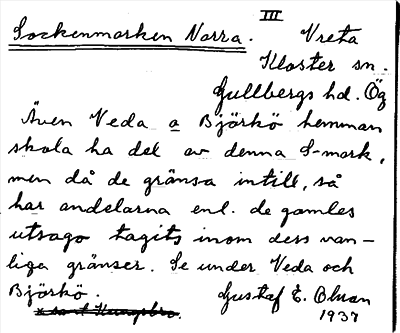 III
Sockenmarken Norra. Vreta
Kloster sn.
Gullbergs hd. Ög
Även Veda a Björkö hemman
skola ha del av denna S-mark,
men då de gränsa intill, så
har andelarna enl. de gamles
utsago tagits inom dess van-
liga gränser. Se under Veda och
Björkö. Gustaf E. Olman
1937